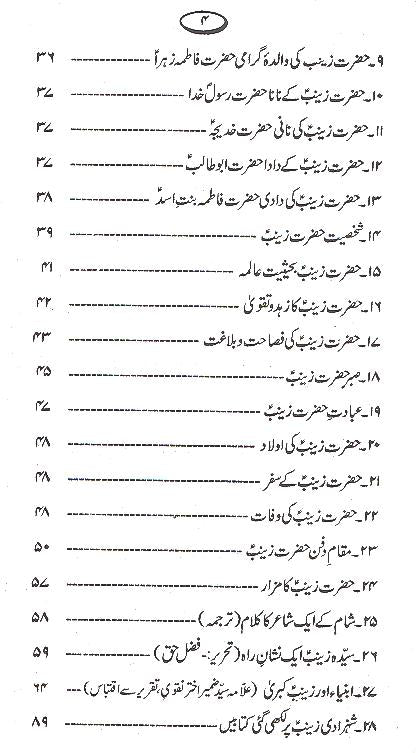 ۴
۹۔حضرت زینبؑ کی والدۂ گرامی حضرت فاطمہ زہراؑ ---------- ۳۶
۱۰۔حضرت زینبؑ کے نانا حضرت رسولؐ خدا ---------- ۳۷
۱۱۔حضرت زینبؑ کی نانی حضرت خدیجہؑ ---------- ۳۷
۱۲۔حضرت زینبؑ کے دادا حضرت ابوطالبؑ ---------- ۳۷
۱۳۔حضرت زینبؑ کی دادی حضرت فاطمہ بنتِ اسدؑ ---------- ۳۸
۱۴۔شخصیت حضرت زینبؑ ---------- ۳۹
۱۵۔حضرت زینبؑ بحیثیت عالمہ ---------- ۴۱
۱۶۔حضرت زینبؑ کا زہد و تقویٰ ---------- ۴۲
۱۷۔حضرت زینبؑ کی فصاحت و بلاغت ---------- ۴۳
۱۸۔صبرِ حضرت زینبؑ ---------- ۴۵
۱۹۔عبادتِ حضرت زینبؑ ---------- ۴۷
۲۰۔حضرت زینبؑ کی اولاد ---------- ۴۸
۲۱۔حضرت زینبؑ کے سفر ---------- ۴۸
۲۲۔حضرت زینبؑ کی وفات ---------- ۴۸
۲۳۔مقامِ دفن حضرت زینبؑ ---------- ۵۰
۲۴۔حضرت زینبؑ کا مزار ---------- ۵۷
۲۵۔شام کے ایک شاعر کا کلام (ترجمہ) ---------- ۵۸
۲۶۔سیّدہ زینبؑ ایک نشانِ راہ (تحریر:۔ فضل حق) ---------- ۵۹
۲۷۔انبیاء اور زینبِؑ کبریٰ (علّامہ سیّد ضمیر اختر نقوی، تقریر سے اقتباس) ---------- ۶۴
۲۸۔شہزادی زینبؑ پر لکھی گئی کتابیں ---------- ۸۹